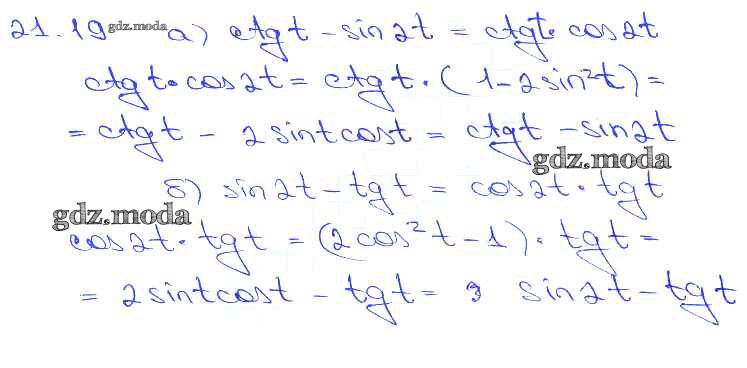 21.19 gdz.moda а) ctg t - sin 2t = ctg t · cos 2t
ctg t · cos 2t = ctg t · (1 - 2 sin² t) =
= ctg t - 2 sin t cos t = ctg t - sin 2t
gdz.moda
б) sin 2t - tg t = cos 2t · tg t
gdz.moda
cos 2t · tg t = (2 cos² t - 1) · tg t =
= 2 sin t cos t - tg t = sin 2t - tg t